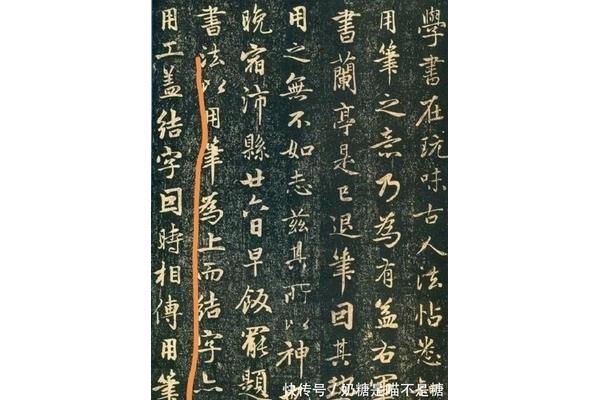 學書在玩味古人法帖悉
用筆之意乃為有益右軍
書蘭亭是已退筆因其勢
用之無不如志茲其所以神
晚宿沛縣廿六日早飯罷題
書法以用筆為上而結字亦
用工蓋結字因時相傳用筆
快传号/奶糖是喵不是糖